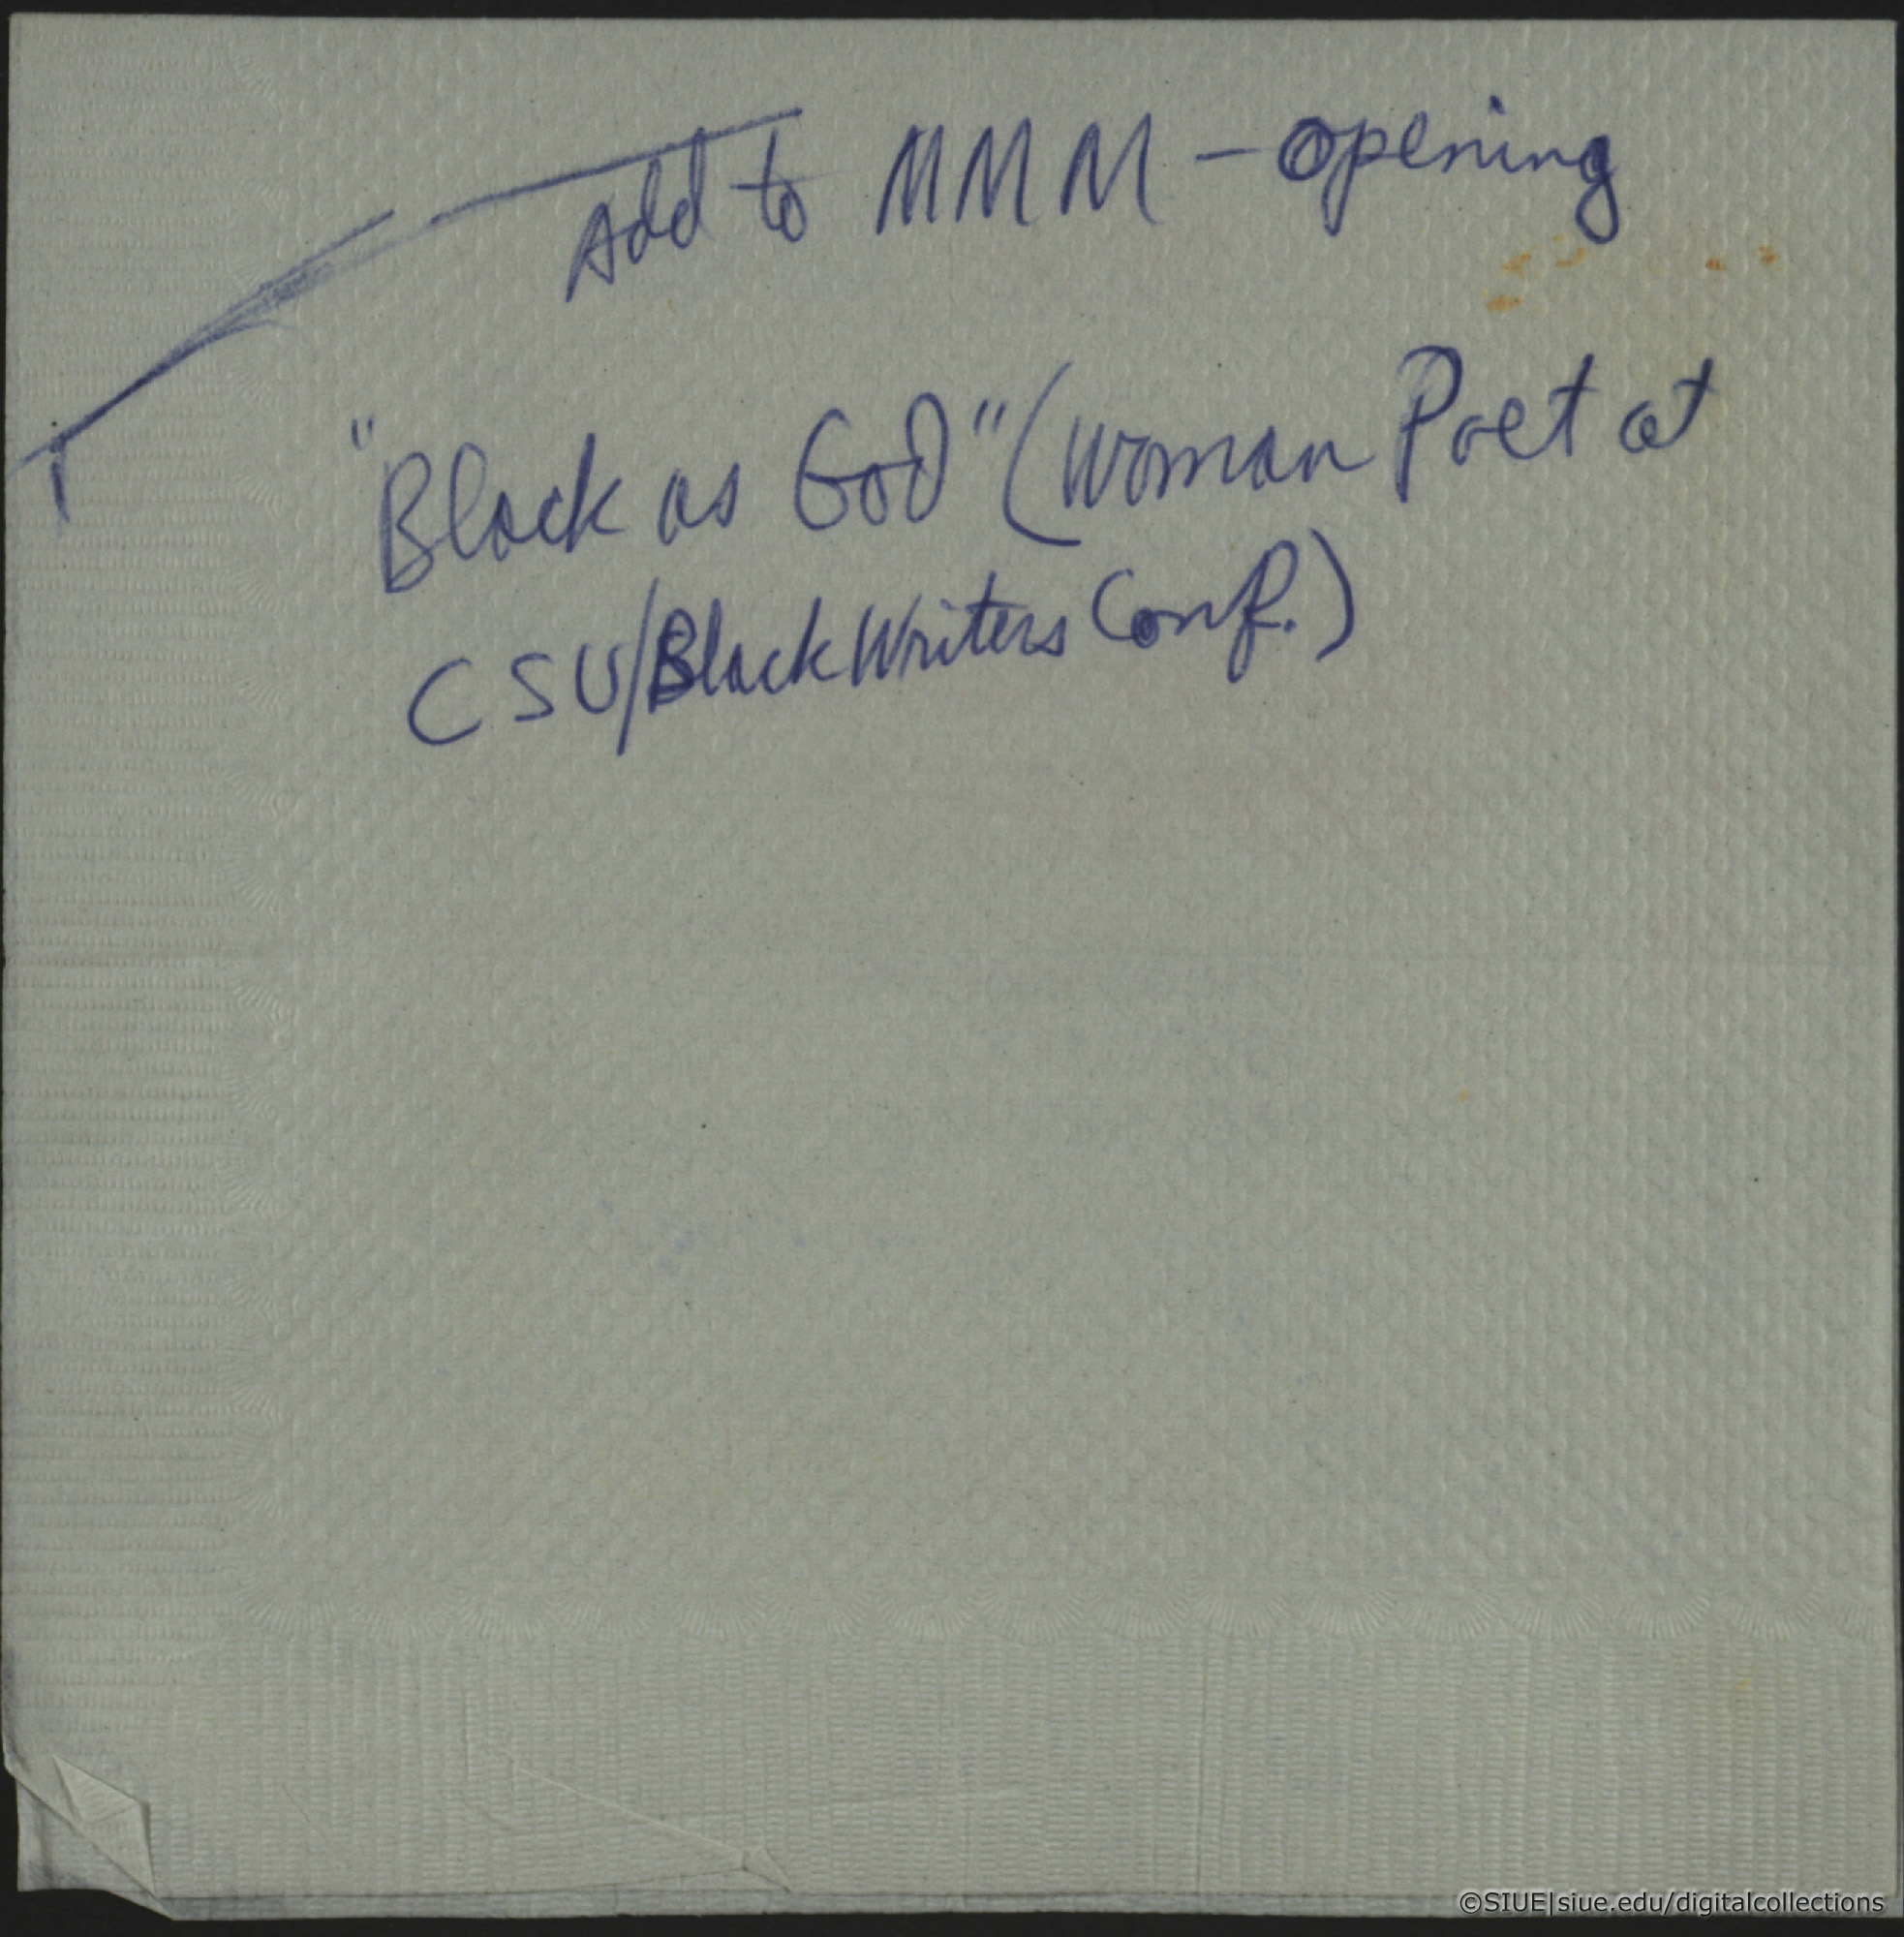 Add to MMM - opening
"Black as God" (Woman Poet at
CSU/Black Writers Conf.)
©SIUE|siue.edu/digitalcollections